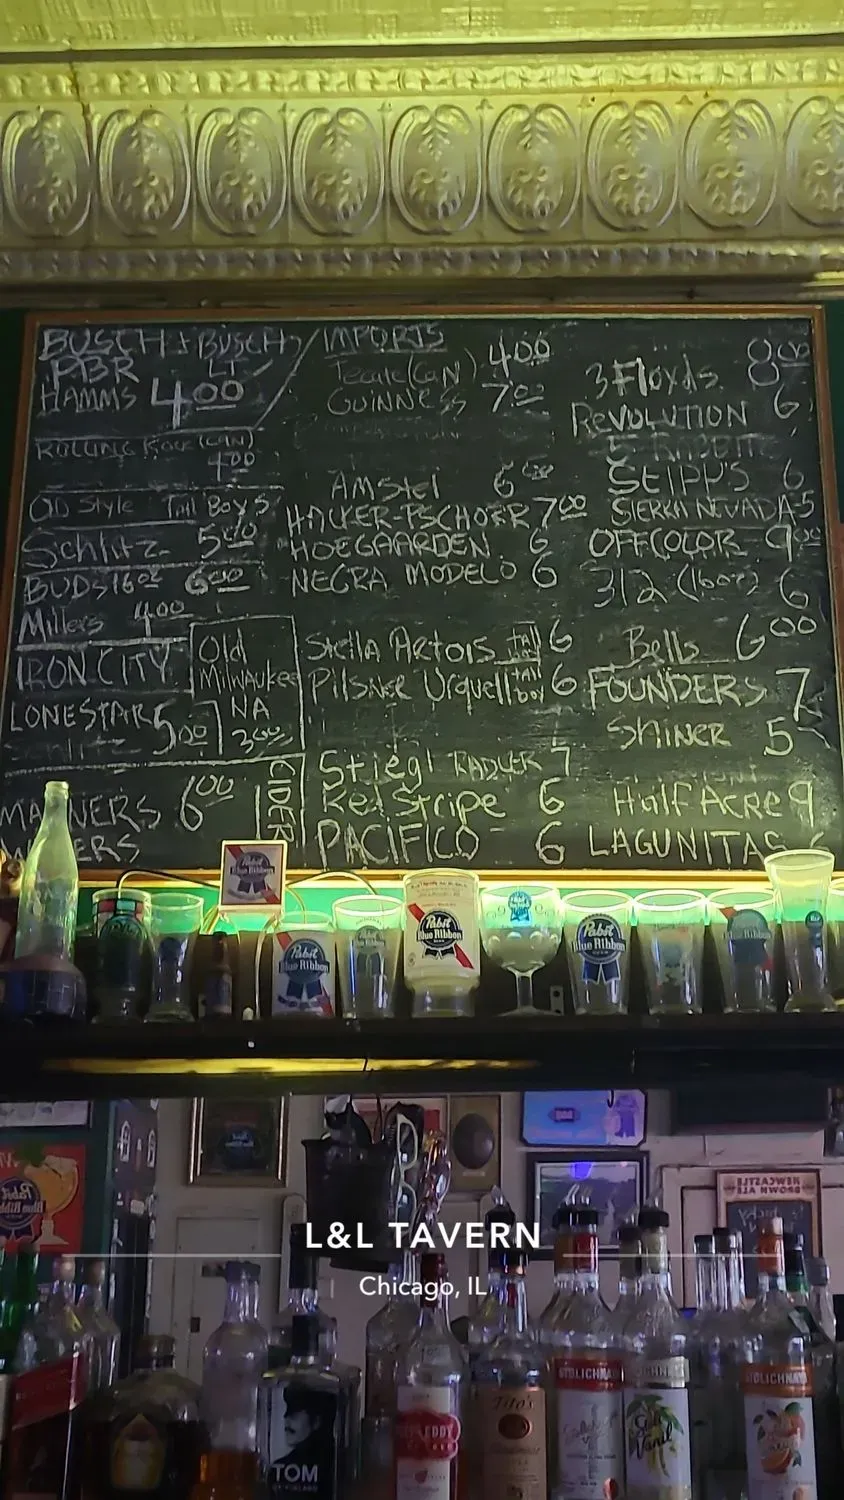 BUSCH + BUSCH LT
PBR
HAMMS 4.00
ROLLING ROCK (CAN)
4.00
OLD Style Tall Boys
Schlitz 5.00
BUDS 16oz 6.00
Millers 4.00
IRON CITY
Old
Milwaukee
NA
3.00
LONESTAR 5.00
MANNERS 6.00
CIDER
IMPORTS
Tecate (CAN) 4.00
GUINNESS 7.00
AMStel 6.00
HACKER-PSCHORR 7.00
HOEGAARDEN 6
NEGRA MODELO 6
Stella Artois tall 6
Pilsner Urquell tall boy 6
Stiegl RADLER 7
Red Stripe 6
PACIFICO 6
3 Floyds 8.00
REVOLUTION 6
STIPP'S 6
SIERRA NEVADA 5
OFFCOLOR 9.00
312 (16oz) 6
Bells 6.00
FOUNDERS 7
SHINER 5
Half Acre 9
LAGUNITAS 6
Pabst
Blue Ribbon
Pabst
Blue Ribbon
Pabst
Blue Ribbon
Pabst
Blue Ribbon
NEWCASTLE
BROWN ALE
L&L TAVERN
Chicago, IL
TOM
OF FINLAND
Tito's
STOLICHNAYA
Stoli
Vanil
STOLICHNAYA